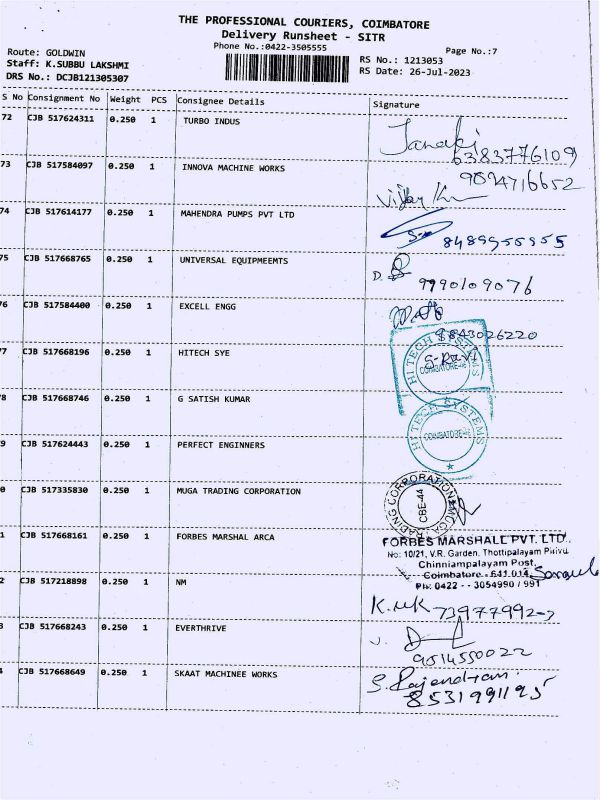 THE PROFESSIONAL COURIERS, COIMBATORE
Delivery Runsheet - SITR
Phone No.:0422-3505555
Page No.:7
Route: GOLDWIN
Staff: K.SUBBU LAKSHMI
DRS No.: DCJB121305307
RS No.: 1213053
RS Date: 26-Jul-2023
S No Consignment No Weight PCS Consignee Details Signature
72 CJB 517624311 0.250 1 TURBO INDUS
Janaki
6383776109
73 CJB 517584097 0.250 1 INNOVA MACHINE WORKS
9894716652
74 CJB 517614177 0.250 1 MAHENDRA PUMPS PVT LTD
8489955955
75 CJB 517668765 0.250 1 UNIVERSAL EQUIPMEEMTS
9990109076
76 CJB 517584400 0.250 1 EXCELL ENGG
9843026220
77 CJB 517668196 0.250 1 HITECH SYE
HI TECH SYSTEMS
COIMBATORE
S-Ravi
8 CJB 517668746 0.250 1 G SATISH KUMAR
HI TECH SYSTEMS
COIMBATORE
9 CJB 517624443 0.250 1 PERFECT ENGINNERS
0 CJB 517335830 0.250 1 MUGA TRADING CORPORATION
MUGA TRADING CORPORATION
CBE-44
1 CJB 517668161 0.250 1 FORBES MARSHAL ARCA
FORBES MARSHALL PVT. LTD.
No: 10/21, V.R. Garden, Thottipalayam Pirivu
Chinniampalayam Post,
Coimbatore - 641 014
Ph: 0422 - - 3054990 / 991
2 CJB 517218898 0.250 1 NM
3 CJB 517668243 0.250 1 EVERTHRIVE
9514550022
4 CJB 517668649 0.250 1 SKAAT MACHINEE WORKS
S. Rajendran
8531991195